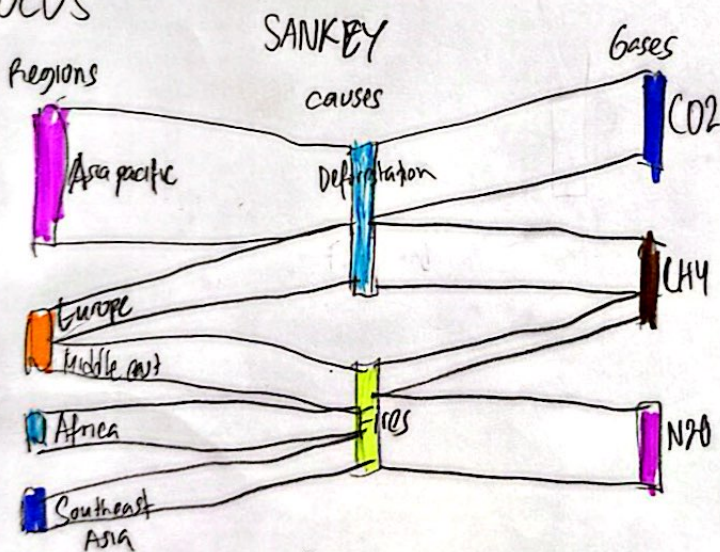 OCUS
SANKEY
Regions
causes
Gases
Asia pacific
Deforestation
CO2
Europe
Middle east
CH4
Africa
Fires
N20
Southeast
Asia